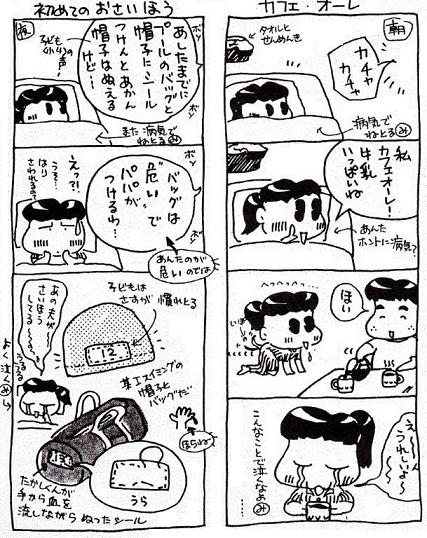 カフェ・オーレ
朝
タオルと
せんめんき
カチャ
カチャ
病気で
ねとる
み
私
カフェオーレ!
牛乳
いっぱいね
あんた
ホントに病気?
ほい
え〜ん
うれしいよ〜
こんなことで泣くなぁ
み
初めてのおさいほう
夜
子ども
(小4)の
声
ボソ
あしたまでに
プールのバッグと
帽子にシール
つけんとあかん
帽子はぬえる
けど…
ボソ
また病気で
ねとる
み
バッグは
"危い"で
パパが
つけるら…
ボソ
えっ?!
うそ…
はり
さわれるの?
あんたのが
危いのでは
子どもは
さすが
慣れとる
12
あの夫が〜
さいほう
してる〜
うるうる
よく泣くみ
某スイミングの
帽子と
バッグだ
ほらね
うら
たかしくんが
手から血を
流しながら ぬったシール